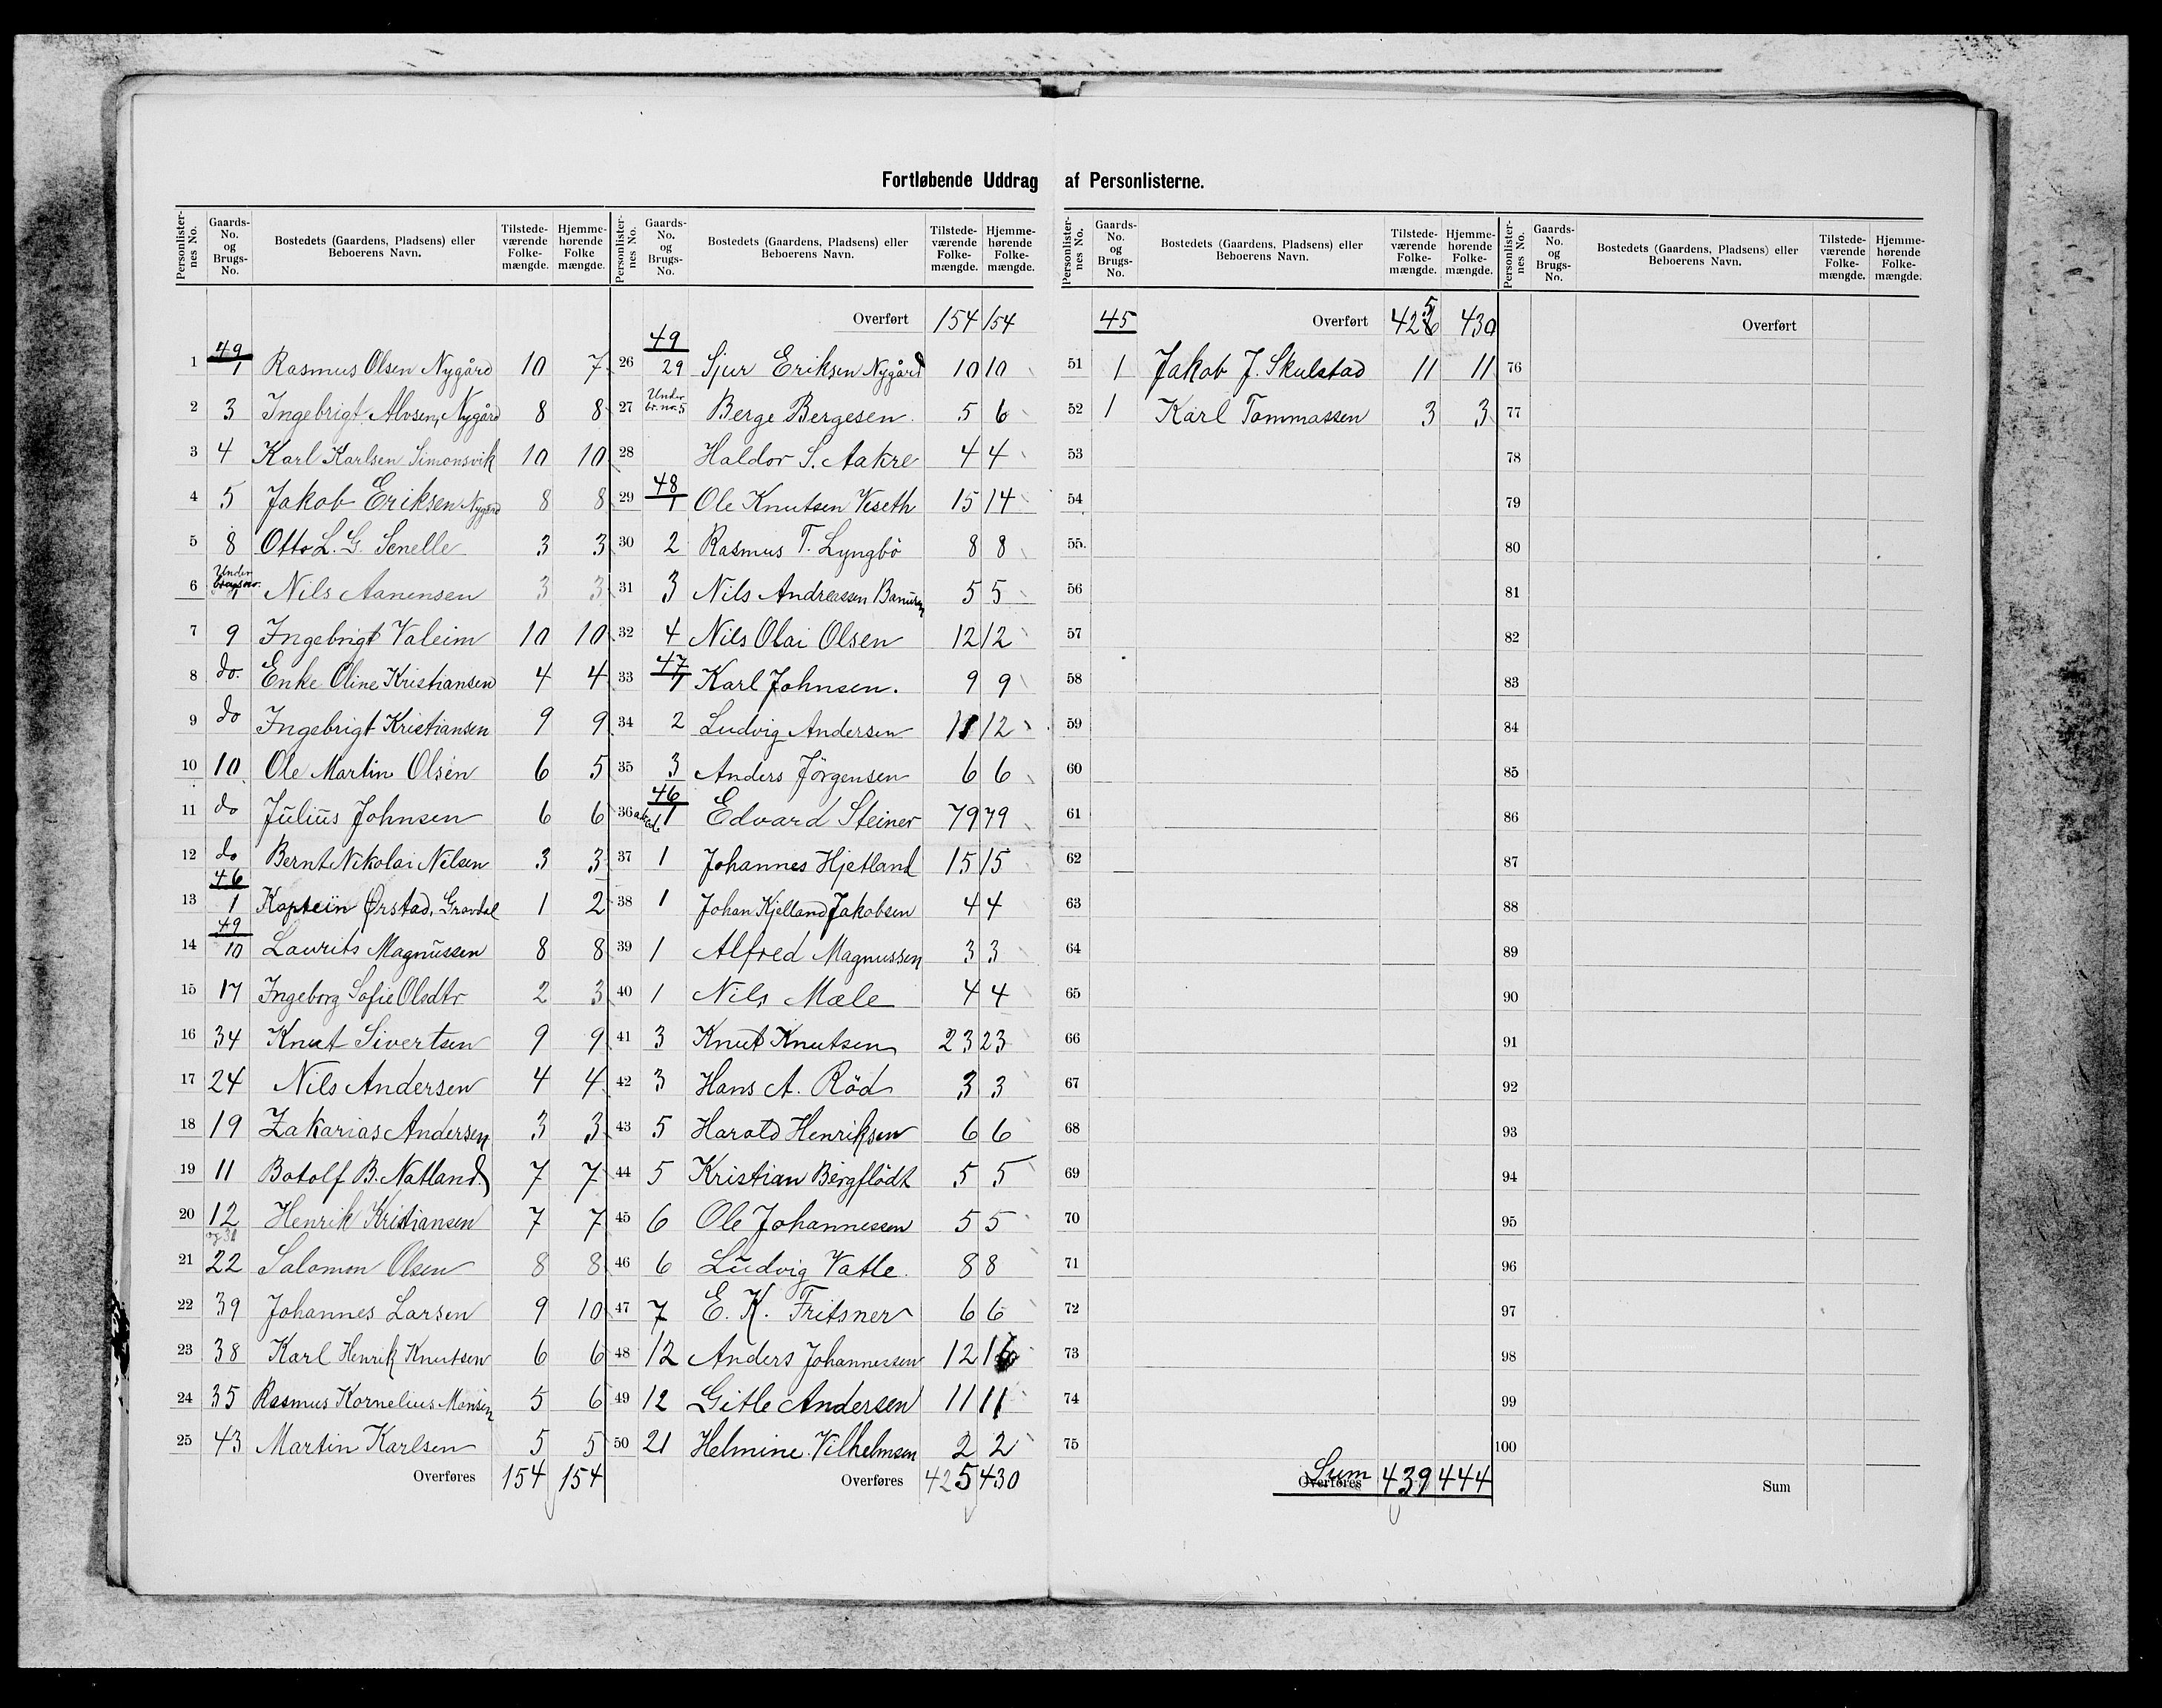 Fortløbende Uddrag af Personlisterne.
Personlister-nes No. Gaards-No. og Brugs-No. Bostedets (Gaardens, Pladsens) eller Beboerens Navn. Tilstede-værende Folke-mængde. Hjemme-hørende Folke mængde.
49
1 1 Rasmus Olsen Nygård 10 7
2 3 Ingebrigt Alvsen, Nygård 8 8
3 4 Karl Karlsen Simonsvik 10 10
4 5 Jakob Eriksen Nygård 8 8
5 8 Otto L. G. Senelle 3 3
Under
6 brugsno. 1 Nils Aanensen 3 3
7 9 Ingebrigt Valeim 10 10
8 do. Enke Oline Kristiansen 4 4
9 do Ingebrigt Kristiansen 9 9
10 10 Ole Martin Olsen 6 5
11 do Julius Johnsen 6 6
12 do Bernt Nikolai Nilsen 3 3
46
13 1 Kaptein Ørstad, Gravdal 1 2
49
14 10 Laurits Magnussen 8 8
15 17 Ingeborg Sofie Olsdtr 2 3
16 34 Knut Sivertsen 9 9
17 24 Nils Andersen 4 4
18 19 Zakarias Andersen 3 3
19 11 Botolf B. Natland 7 7
20 12 Henrik Kristiansen 7 7
og 31
21 22 Salomon Olsen 8 8
22 39 Johannes Larsen 9 10
23 38 Karl Henrik Knutsen 6 6
24 35 Rasmus Kornelius Monsen 5 6
25 43 Martin Karlsen 5 5
Overføres 154 154
Personlister-nes No. Gaards-No. og Brugs-No. Bostedets (Gaardens, Pladsens) eller Beboerens Navn. Tilstede-værende Folke-mængde. Hjemme-hørende Folke-mængde.
Overført 154 154
49
26 29 Sjur Eriksen Nygård 10 10
Under
27 br. no. 5 Berge Bergesen 5 6
28 Haldor S. Aakre 4 4
48
29 1 Ole Knutsen Veseth 15 14
30 2 Rasmus T. Lyngbö 8 8
31 3 Nils Andreassen 5 5
32 4 Nils Olai Olsen 12 12
47
33 1 Karl Johnsen. 9 9
34 2 Ludvig Andersen 11 12
35 3 Anders Jörgensen 6 6
46
36 1 Edvard Steiner 79 79
37 1 Johannes Hjetland 15 15
38 1 Johan Kjelland Jakobsen 4 4
39 1 Alfred Magnussen 3 3
40 1 Nils Mæle 4 4
41 3 Knut Knutsen 23 23
42 3 Hans A. Röd 3 3
43 5 Harald Henriksen 6 6
44 5 Kristian Bergflödt 5 5
45 6 Ole Johannessen 5 5
46 6 Ludvig Vatle. 8 8
47 7 E. K. Fritsner 6 6
48 12 Anders Johannessen 12 16
49 12 Gitle Andersen 11 11
50 21 Helmine Vilhelmsen 2 2
Overføres 425 430
Personlister-nes No. Gaards-No. og Brugs-No. Bostedets (Gaardens, Pladsens) eller Beboerens Navn. Tilstede-værende Folke-mængde. Hjemme-hørende Folke-mængde.
45 Overført 425 430
51 1 Jakob J. Skulstad 11 11
52 1 Karl Tommassen 3 3
53
54
55.
56
57
58
59
60
61
62
63
64
65
66
67
68
69
70
71
72
73
74
75
Sum
Overføres 439 444
Personlister-nes No. Gaards-No. og Brugs-No. Bostedets (Gaardens, Pladsens) eller Beboerens Navn. Tilstede-værende Folke-mængde. Hjemme-hørende Folke-mængde.
Overført
76
77
78
79
80
81
82
83
84
85
86
87
88
89
90
91
92
93
94
95
96
97
98
99
100
Sum